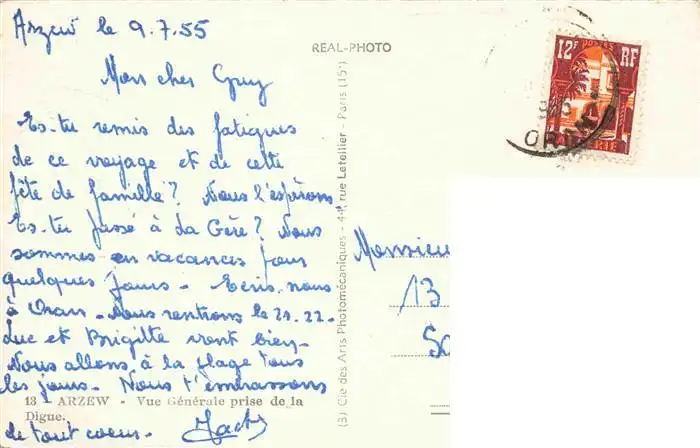 Arzew le 9.7.55
Mon cher Guy
Es-tu remis des fatigues
de ce voyage et de cette
fête de famille ? Nous l'espérons
Es-tu passé à La Gère ? Nous
sommes en vacances pour
quelques jours - Ecris-nous
à Oran. Nous rentrons le 21.22.
Luc et Brigitte vont bien.
Nous allons à la plage tous
les jours. Nous t'embrassons
13 - ARZEW - Vue Générale prise de la
Digue.
de tout coeur.
REAL-PHOTO
(3) Cie des Arts Photomécaniques - 44, rue Letellier - Paris (15e)
12F POSTES RF
ORAN
Monsieur
13